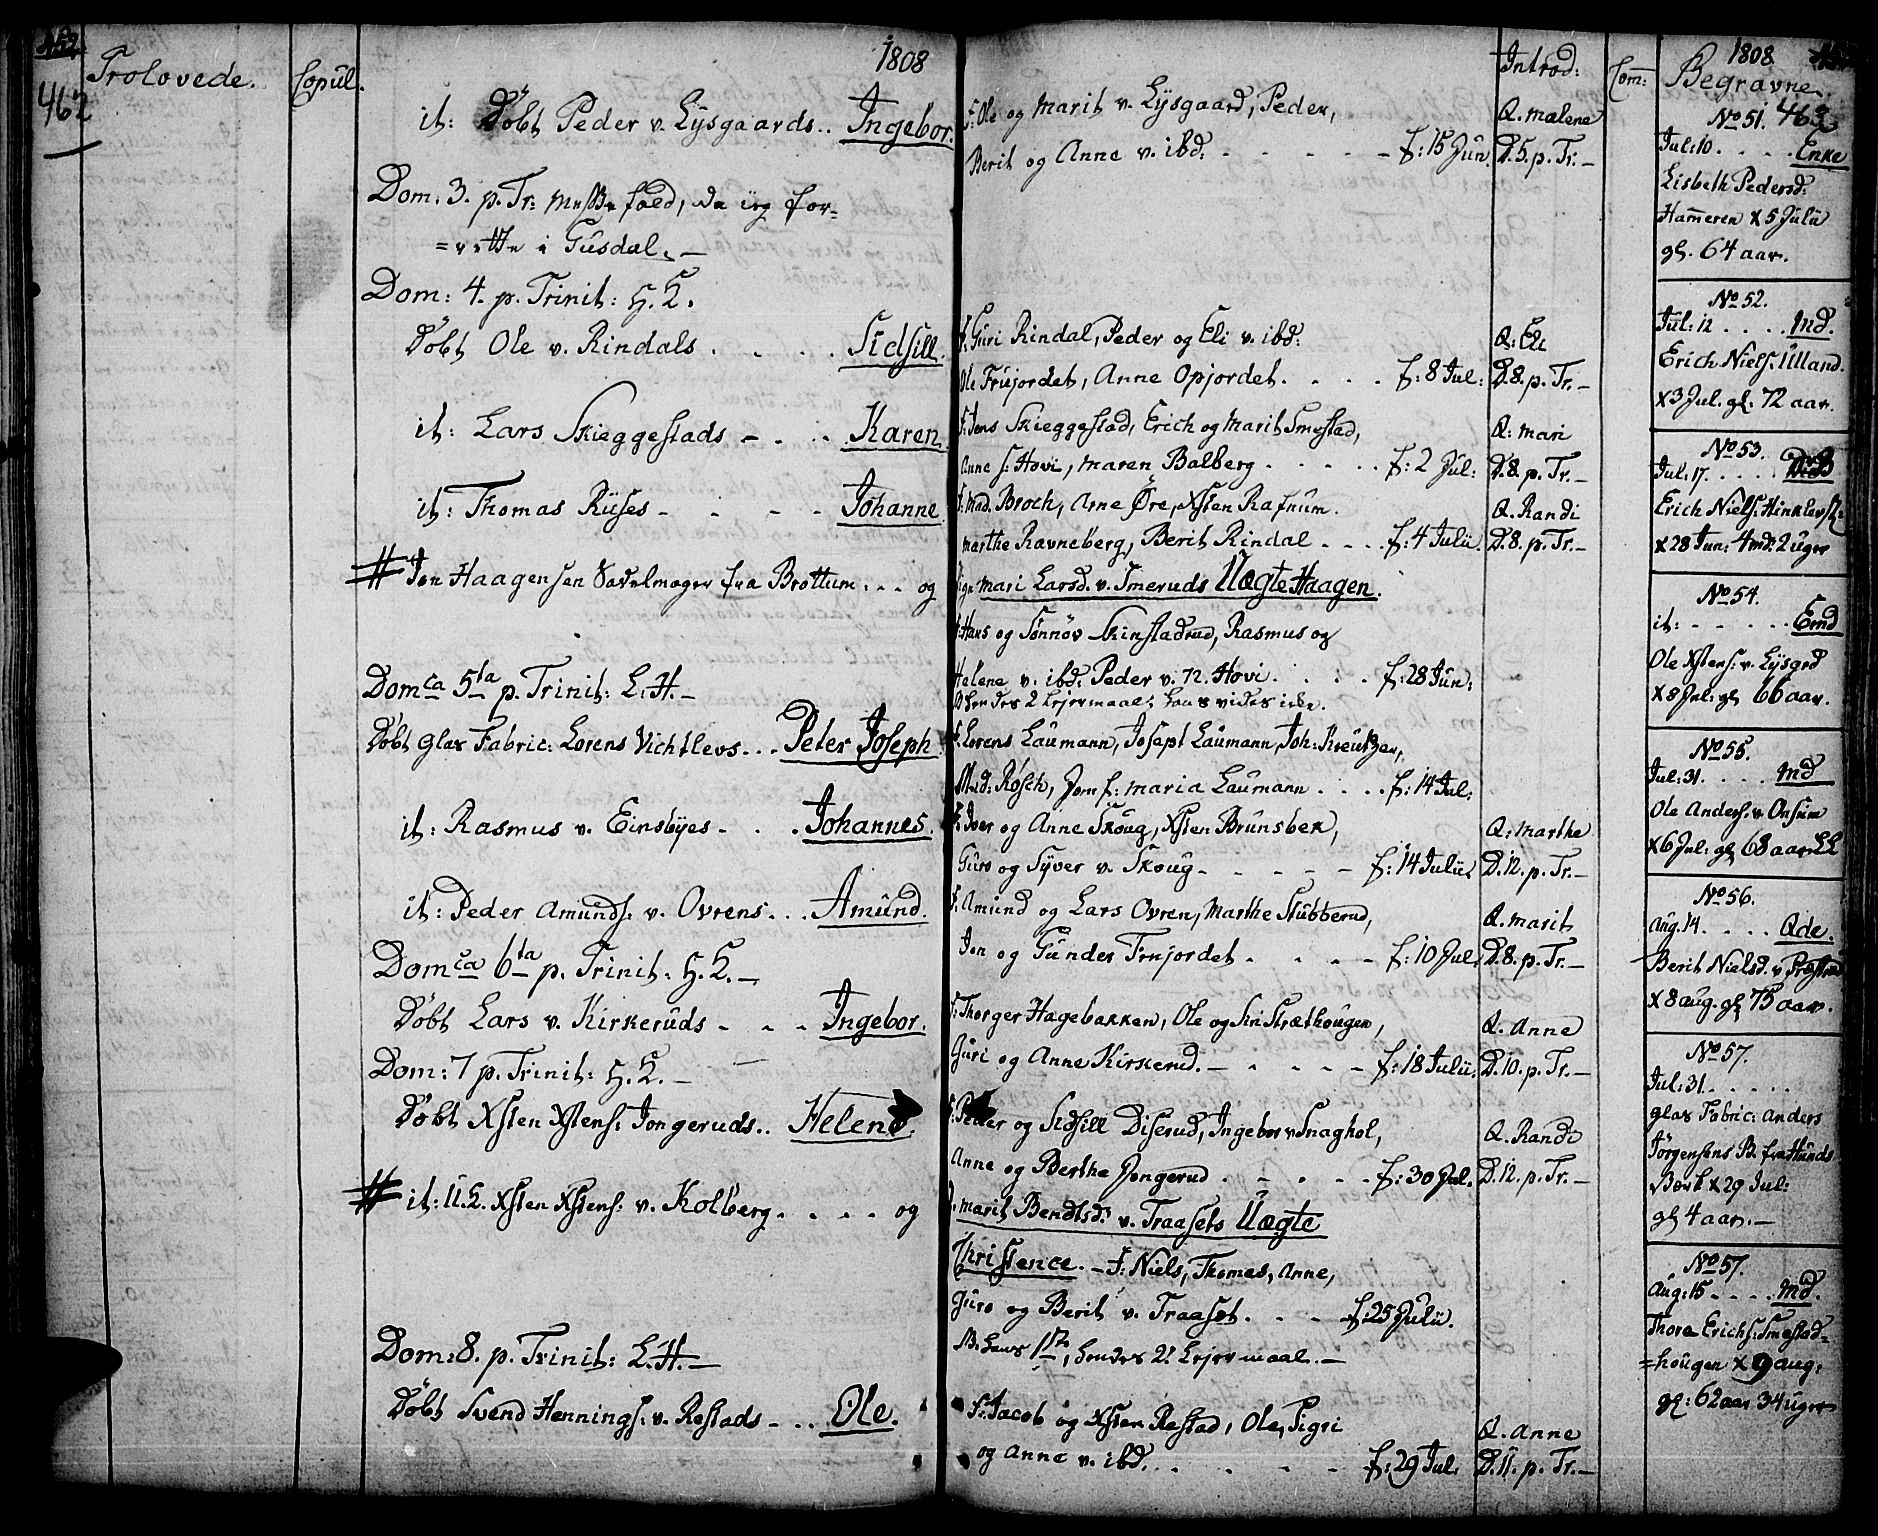 462
Trolovede.
Copul.
1808
it: Döbt Peder v. Lÿsgaards.. Ingebor.
Dom. 3. p. Tr: Messe fald, da ieg for=
=rette i Gusdal. —
Dom: 4. p. Trinit: H. L.
Döbt Ole v. Rindals . . . . Sidsill.
it: Lars Skieggestads - . . . Karen
it: Thomas Rüses - - - - Johanne
# Jon Haagensen Sadelmager fra Brøttum . . . og
Domca 5ta p. Trinit: L. H. —
Döbt glas Fabric: Lorens Vichtlevs . . . Peter Joseph
it: Rasmus v. Einsbÿes - . . . Johannes.
it: Peder Amunds: v. Ovrens . . . Amünd.
Domca 6ta p. Trinit: H. L. —
Döbt Lars v. Kirkeruds - - - Ingebor.
Dom: 7 p. Trinit: H. L. —
Döbt Xsten Xstens: Jongeruds .. Helene.
# it: U. L. Xsten Xstens: v. Kolberg . . . . og
Dom: 8. p. Trinit: L. H. —
Döbt Svend Hennings: v. Restads - . . Ole.
F: Ole og Marit v. Lÿsgaard, Peder,
Berit og Anne v. ibd. - - - - - f: 15 Jun.
F: Guri Rindal, Peder og Eli v. ibd:
Ole Frujordet, Anne Opjordet . . . . f: 8 Jul:
F: Jens Skieggestad, Erich og Marit Smestad,
Anne S: Hovi, Maren Balberg . . . . . f: 2 Jul:
F: Mad. Broch, Arne Øre, Xsten Rafnum.
Marthe Ravneberg, Berit Rindal . . . . f: 4 Julii.
Pige Mari Larsd. v. Smeruds Uægte Haagen.
F: Hans og Sønnøv Skinstadrud, Rasmus og
Helene v. ibd. Peder v. N. Hovi . . . . f: 28 Jun:
hendes 2 Lejermaal; hans vides ikke.
F: Lorens Laumann, Josept Laumann, Joh: Kreutzer,
Mad: Røsch, Jomf: Maria Laumann . . . . f: 14 Jul:
F: Iver og Anne Skoug, Xsten Brunsbek,
Guro og Syver v. Skoug - - - - - f: 14 Julii.
F: Amund og Lars Ovren, Marthe Stubberud,
Jon og Gunder Frujordet . . . . f: 10 Jul.
F: Thorger Hagebakken, Ole og Siri Stræthougen,
Guri og Anne Kirkerud. - . . . - f: 18 Julii:
F: Peder og Sidsill Diserud, Ingebor v Snaghol,
Anne og Berthe Jongerud . . . . . f: 30 Jul.
P. Marit Bendtsd: v. Traasets Uægte
Christence. - F: Niels, Thomas, Anne,
Guro og Berit v. Traaset . . . . f: 25 Julii.
NB. hans 1ste, hendes 2t Lejermaal. —
F: Jacob og Xsten Restad, Ole, Sigri
og Anne v. ibd. . . . . . f: 29 Jul.
Introd:
Q. Malene
D. 5. p. Tr. —
Q: Eli
D. 8. p. Tr. —
Q: Mari
D. 8. p. Tr. —
Q. Randi
D. 8. p. Tr. —
Q: Marthe
D. 12. p. Tr. —
Q. Marit
D. 8. p. Tr. —
Q. Anne
D. 10. p. Tr. —
Q. Randi
D. 12. p. Tr. —
Q. Anne
D. 11. p. Tr. —
Com:
1808
Begravne.
463
No 51.
Jul: 10 . . . . Enke
Lisbeth Pedersd.
Hammeren X 5 Julii
gl. 64 aar.
No 52.
Jul: 12 . . . . Md.
Erich Niels: Ulland.
X 3 Jul. gl. 72 aar.
No 53.
Jul: 17. . . . .
Erich Niels: Hinklev
X 28 Jun: 4 md: 2 uger
No 54.
it: - . . . . . Emd
Ole Xstens: v. Lÿsgrd
X 8 Jul: gl 66 aar.
No 55.
Jul: 31. . . . . Md
Ole Anders: v. Onsum
X 6 Jul: gl 68 aar
No 56.
Aug. 14 . . . . Qde.
Berit Nielsd. v
X 8 aug. gl 75 aar.
No 57.
Jul: 31. . . . .
glas Fabric: Anders
Jörgensens B. fra Hunds
Bort X 29 Jul:
gl 4 aar. —
No 57.
Aug: 15 . . . . Md.
Thore Erichs: Smestad=
=hougen X 9 aug:
gl: 62 aar 34 uger